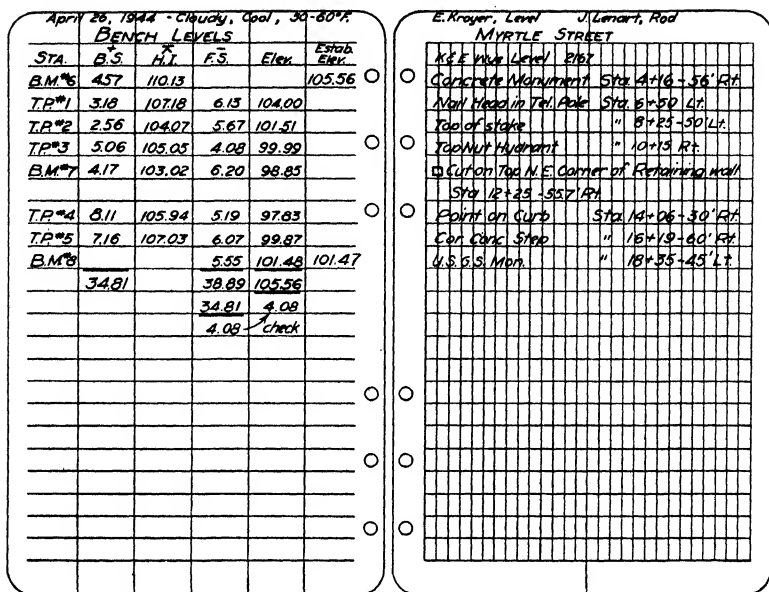 April 26, 1944 - Cloudy, Cool, 30-60°F.
BENCH LEVELS
STA. + B.S. H.I. - F.S. Elev. Estab. Elev.
B.M.#6 4.57 110.13 105.56
T.P.#1 3.18 107.18 6.13 104.00
T.P.#2 2.56 104.07 5.67 101.51
T.P.#3 5.06 105.05 4.08 99.99
B.M.#7 4.17 103.02 6.20 98.85
T.P.#4 8.11 105.94 5.19 97.83
T.P.#5 7.16 107.03 6.07 99.87
B.M.#8 5.55 101.48 101.47
34.81 38.89 105.56
34.81 4.08
4.08 check
E. Kroyer, Level J. Lenart, Rod
MYRTLE STREET
K&E Wye Level 2167
Concrete Monument Sta. 4+16-56' Rt.
Nail Head in Tel. Pole Sta. 6+50 Lt.
Top of stake " 8+25-50' Lt.
Top Nut Hydrant " 10+15 Rt.
□ Cut on Top N.E. Corner of Retaining wall
Sta 12+25-55.7' Rt.
Point on Curb Sta. 14+06-30' Rt.
Cor. Conc. Step " 16+19-60' Rt.
U.S.G.S. Mon. " 18+35-45' Lt.